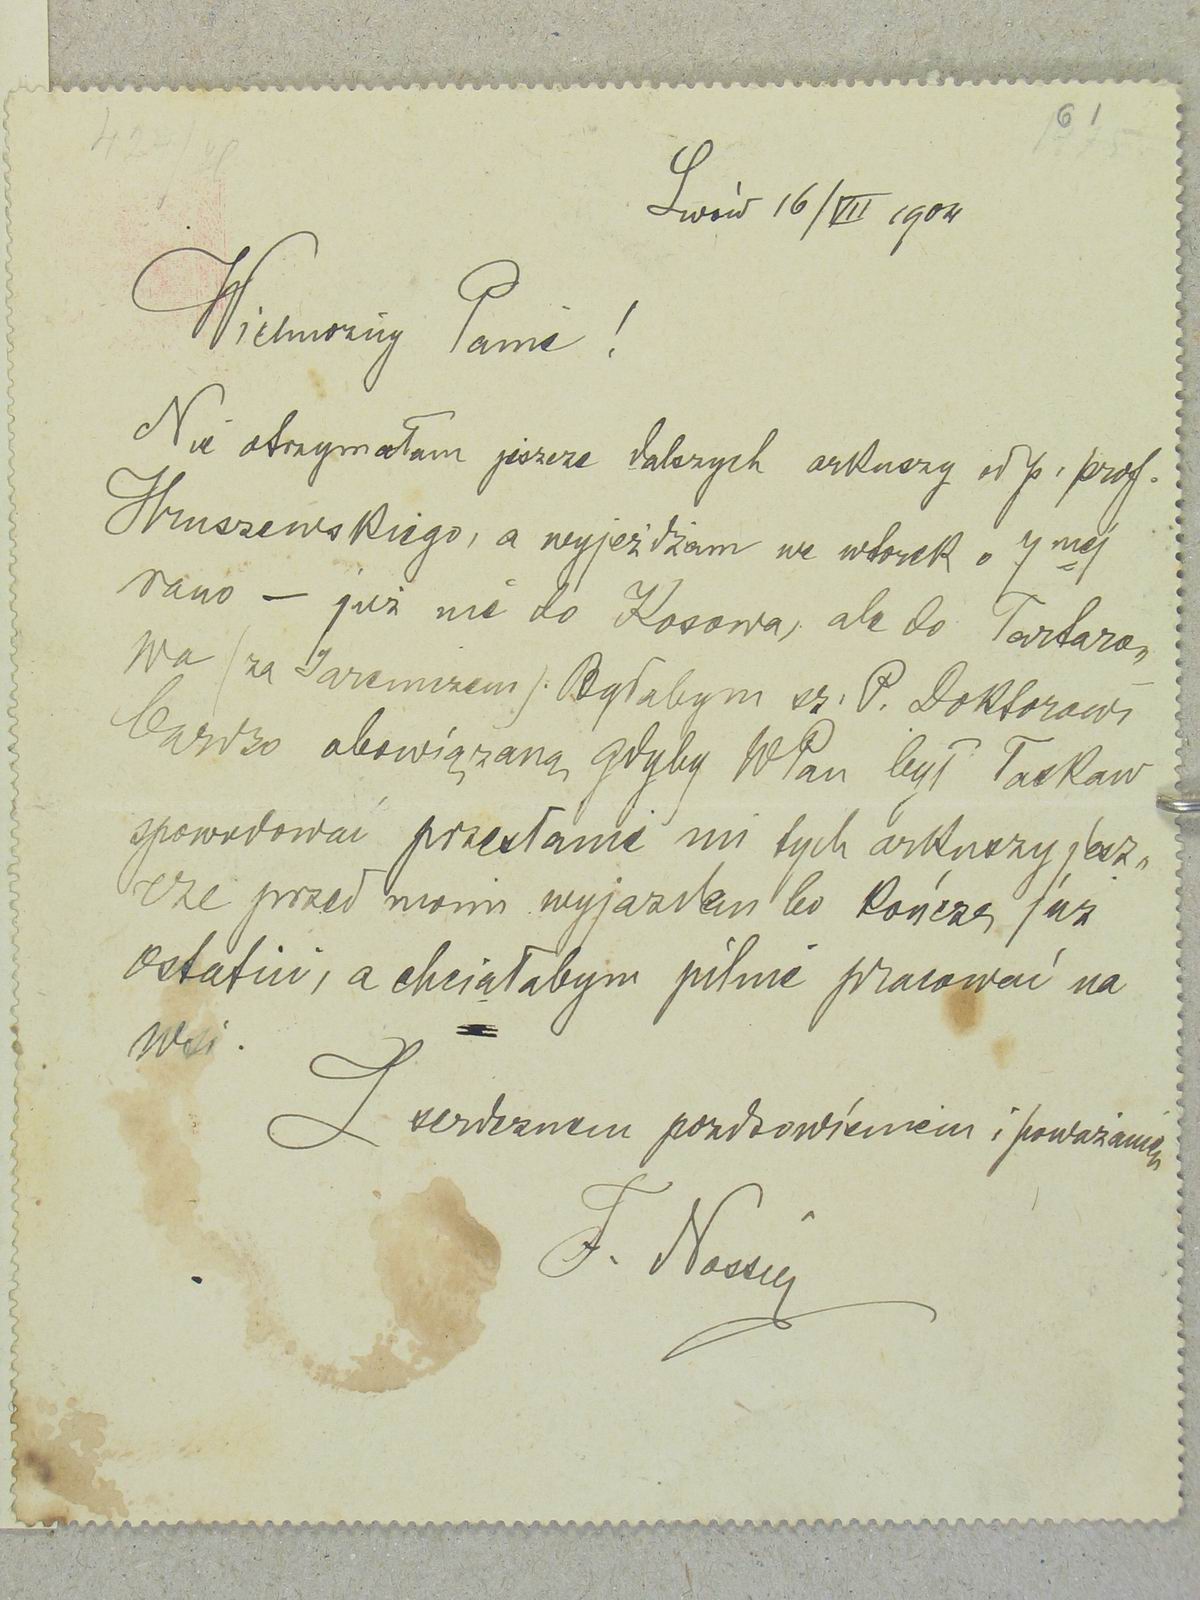 61
Lwów 16/VII 1904
Wielmożny Panie!
Nie otrzymałam jeszcze dalszych arkuszy od p. prof.
Hruszewskiego, a wyjeżdżam we wtorek o 7mej
rano — już nie do Kosowa, ale do Tartaro„
wa (za Jaremczem). Byłabym sz. P. Doktorowi
bardzo obowiązaną gdyby WPan był łaskaw
spowodować przesłanie mi tych arkuszy jesz„
cze przed moim wyjazdem bo kończę już
ostatni, a chciałabym pilnie pracować na
wsi.
Z serdecznem pozdrowieniem i poważaniem
F. Nossig